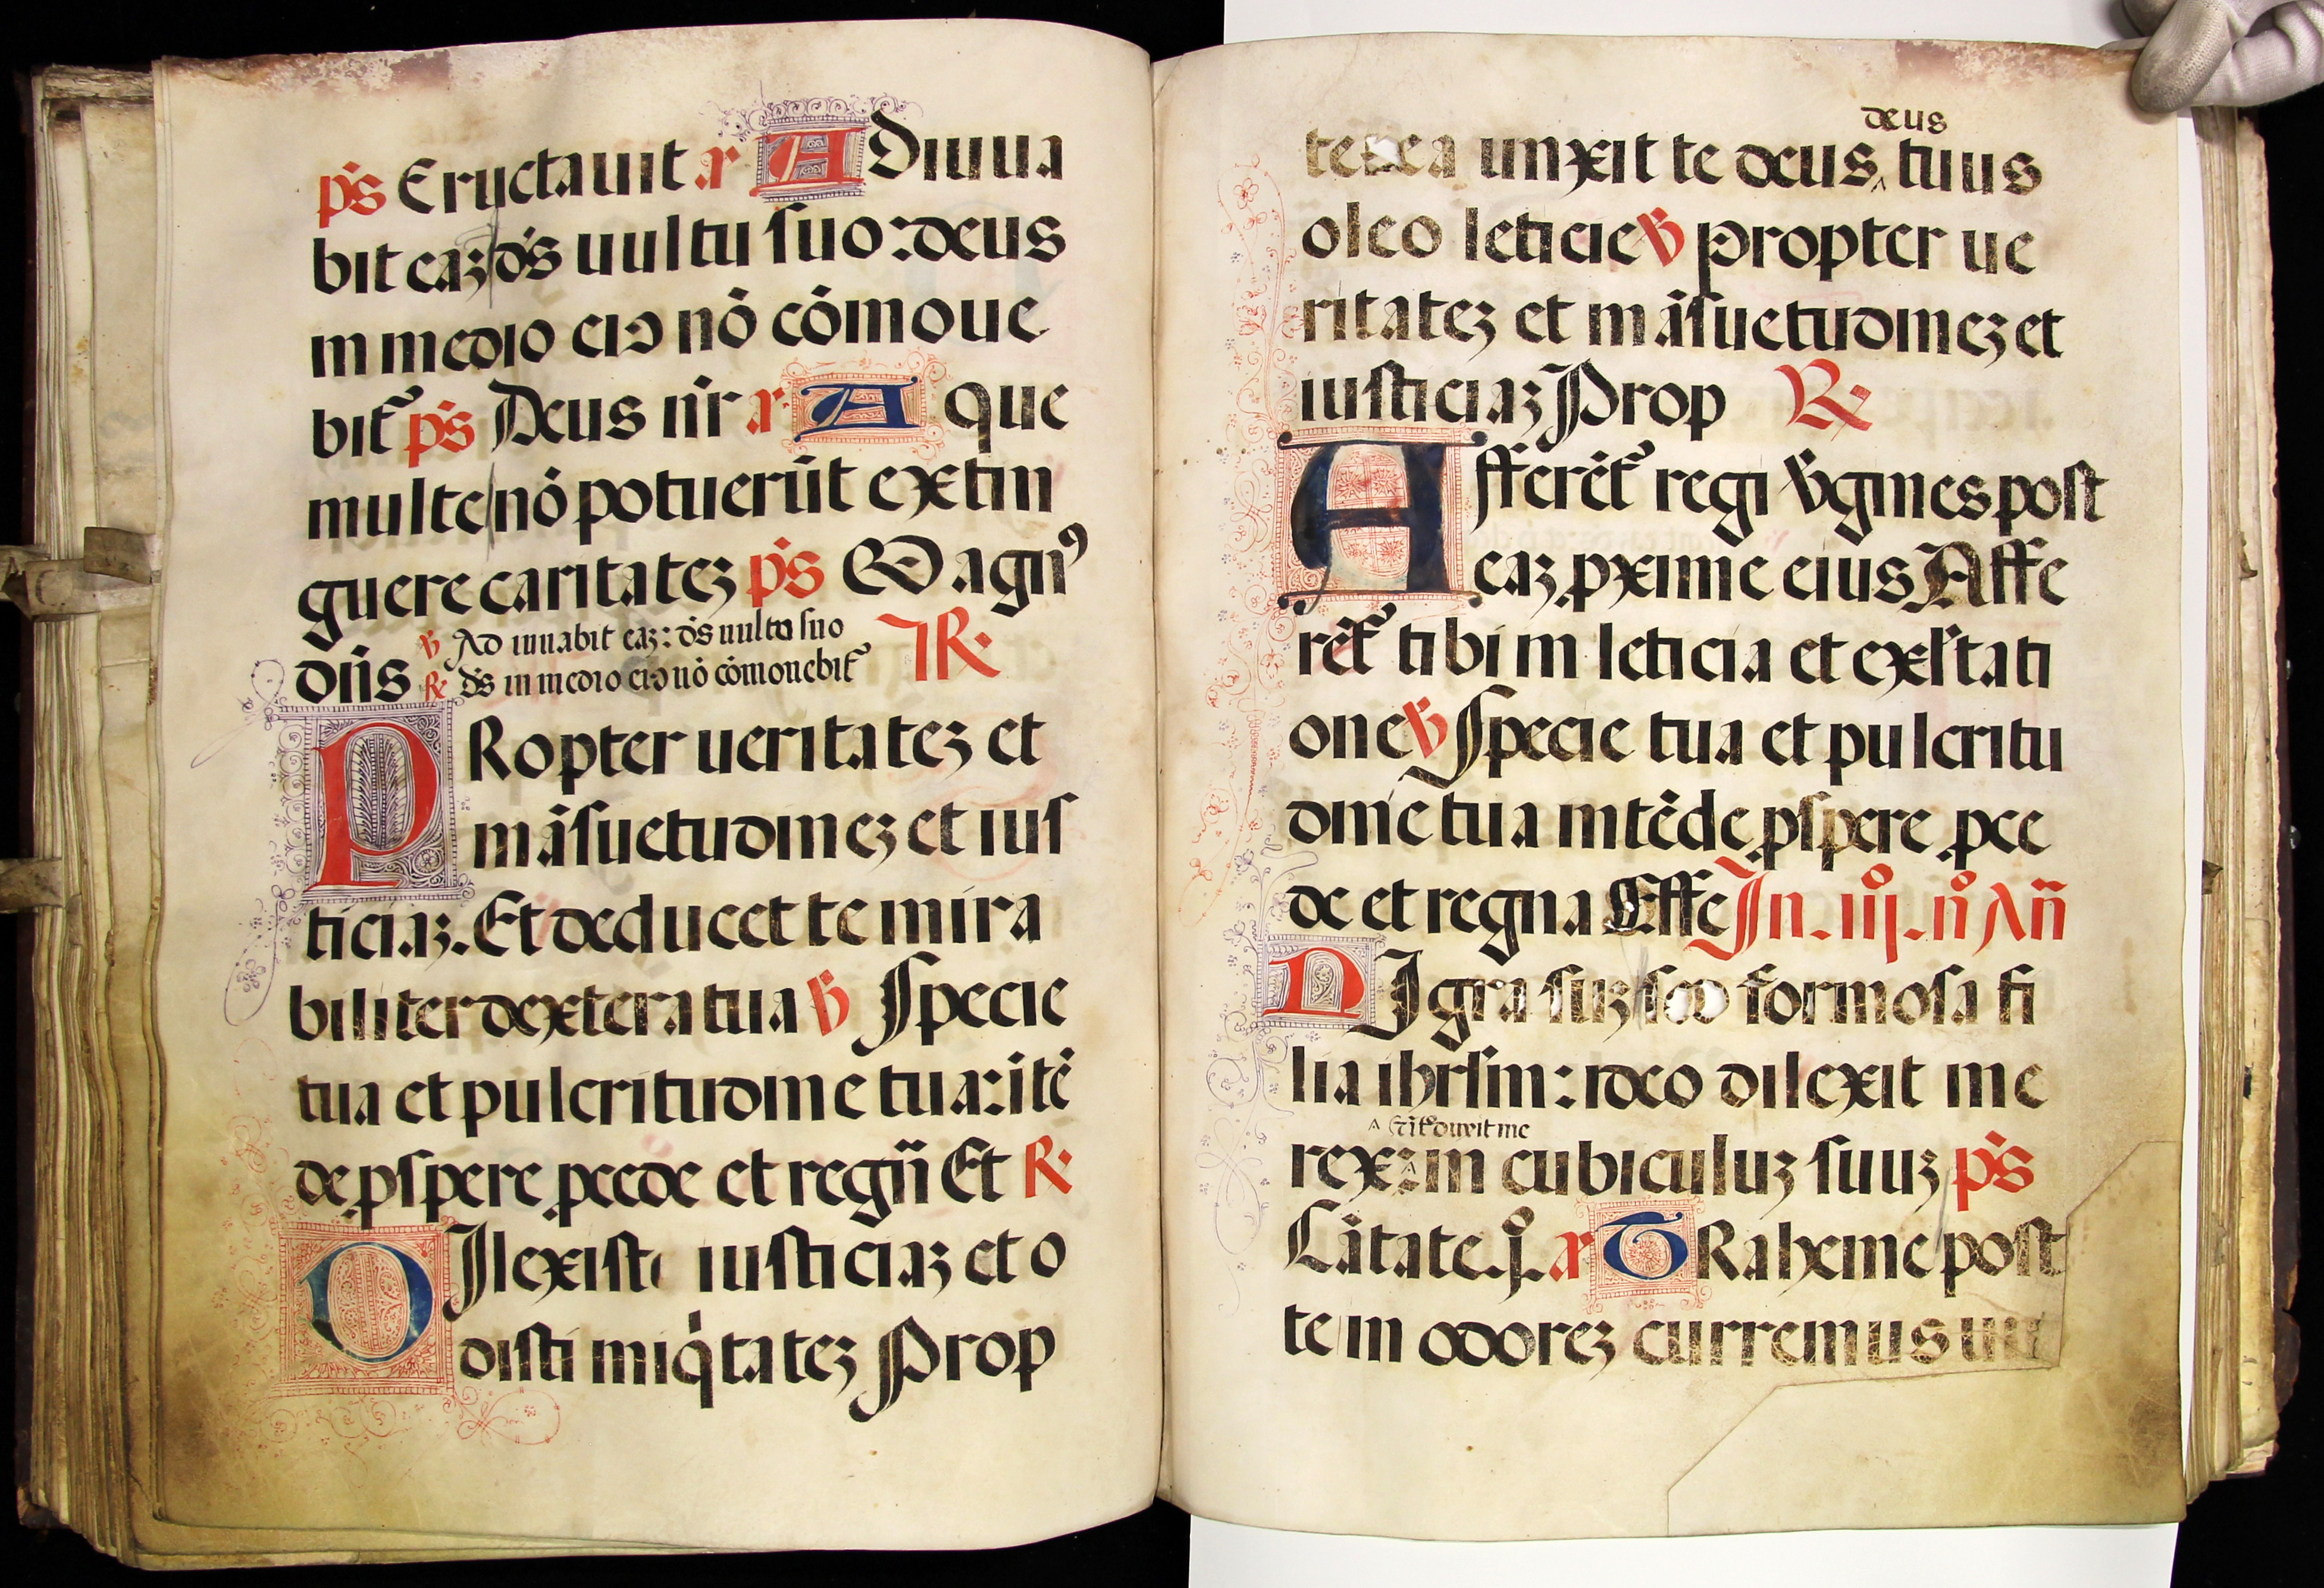 ps Eructauit a Adiuua
bit eaz ds uultu suo: deus
in medio eiꝰ nō cōmoue
bit᷑ ps Deus nr̄ a Aque
multe nō potuerūt extin
guere caritatez ps Magnꝰ
℣ Adiuuabit eaz: ds uultu suo
dn̄s ℟ ds in medio eiꝰ nō cōmouebit᷑ I℟
PRopter ueritatez et
māsuetudinez et ius
ticiaz. Et deducet te mira
biliter dextera tua ℣ Specie
tua et pulcritudine tua: itē
de ꝓspere ꝓcede et regn̄ Et ℟
DIlexisti iusticiaz et o
disti iniqͥtatez Prop
deus
terea unxit te deus ‸ tuus
oleo leticie ℣ Propter ue
ritatez et māsuetudinez et
iusticiaz Prop ℟
Afferēt᷑ regi v̾gines post
eaz ꝓxime eius Affe
rēt᷑ tibi in leticia et exl̾tati
one ℣ Specie tua et pulcritu
dine tua intēde ꝓspere ꝓce
de et regna Effe In. iiȷ. nͦ An̄
NIgra suz sed formosa fi
lia ihrl̾m: ideo dilexit me
rex: ‸ in cubiculuz suuz ps
Cātate. j.ͦ a TRaheme post
te in odorez curremus un